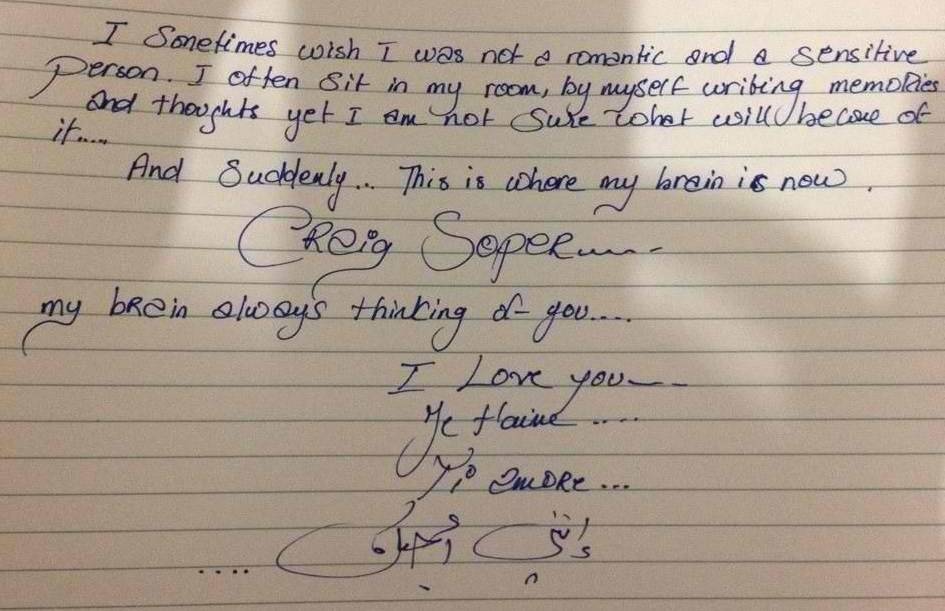 I Sometimes wish I was not a romantic and a sensitive
person. I often sit in my room, by myself writing memories
and thoughts yet I am not sure what will become of
it.....
And Suddenly... This is where my brain is now.
Craig Soper
my brain always thinking of you....
I Love you
Je t'aime ....
Ti amore...
....